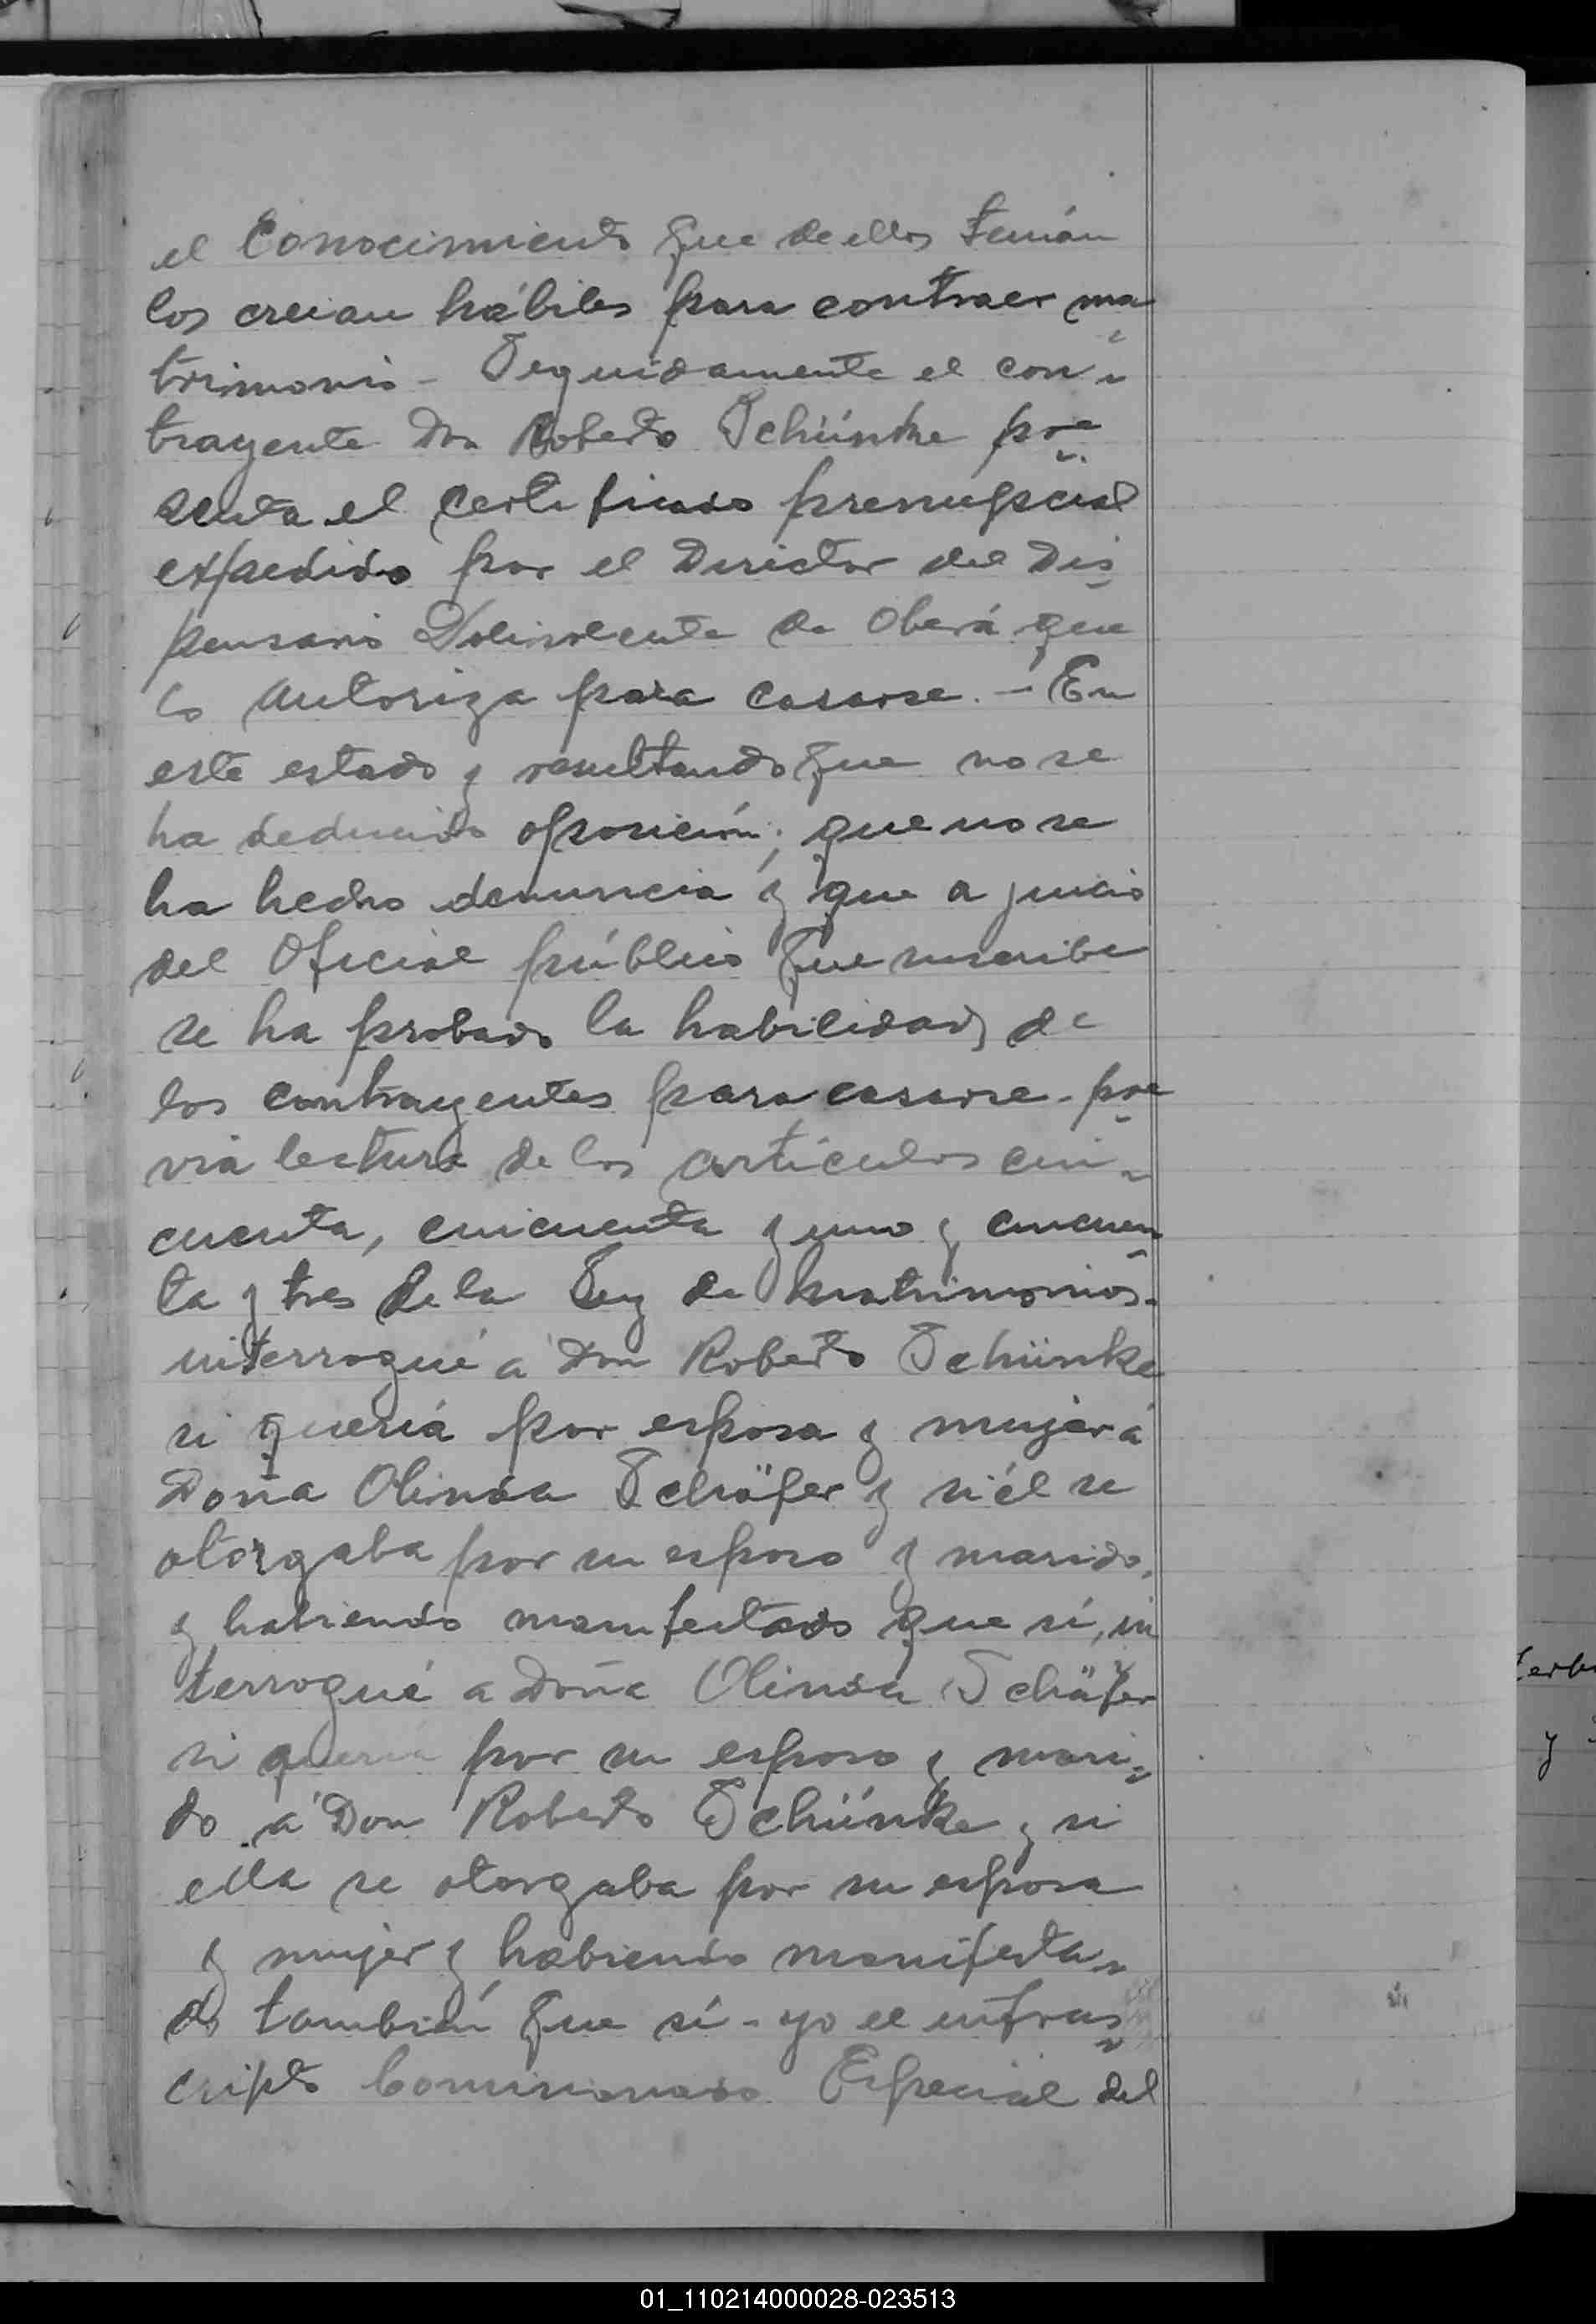 el Conocimiento que de ellos tenián
los creian hábiles para contraer ma
trimonio - Seguidamente el con-
trayente Don Roberto Schünke pre
senta el certificado prenupcial
expedido por el Director del Dis
pensario Polivalente de Oberá que
lo autoriza para casarse. - En
este estado y resultando que no se
ha deducido oposición; que no se
ha hecho denuncia y que a juicio
del Oficial público que suscribe
se ha probado la habilidad de
los contrayentes para casarse - pre
via lectura de los artículos cin-
cuenta, cincuenta y uno y cincuen
ta y tres de la Ley de Matrimonios -
interrogué a Don Roberto Schünke
si quería por esposa y mujer á
Doña Olinda Schäfer y si él se
otorgaba por su esposo y marido,
y habiendo manifestado que sí, in
terrogué a Doña Olinda Schäfer
si quería por su esposo y mari-
do á Don Roberto Schünke y si
ella se otorgaba por su esposa
y mujer y habiendo manifesta-
do también que sí - yo el infras
cripto Comisionado Especial del
y
01_110214000028-023513